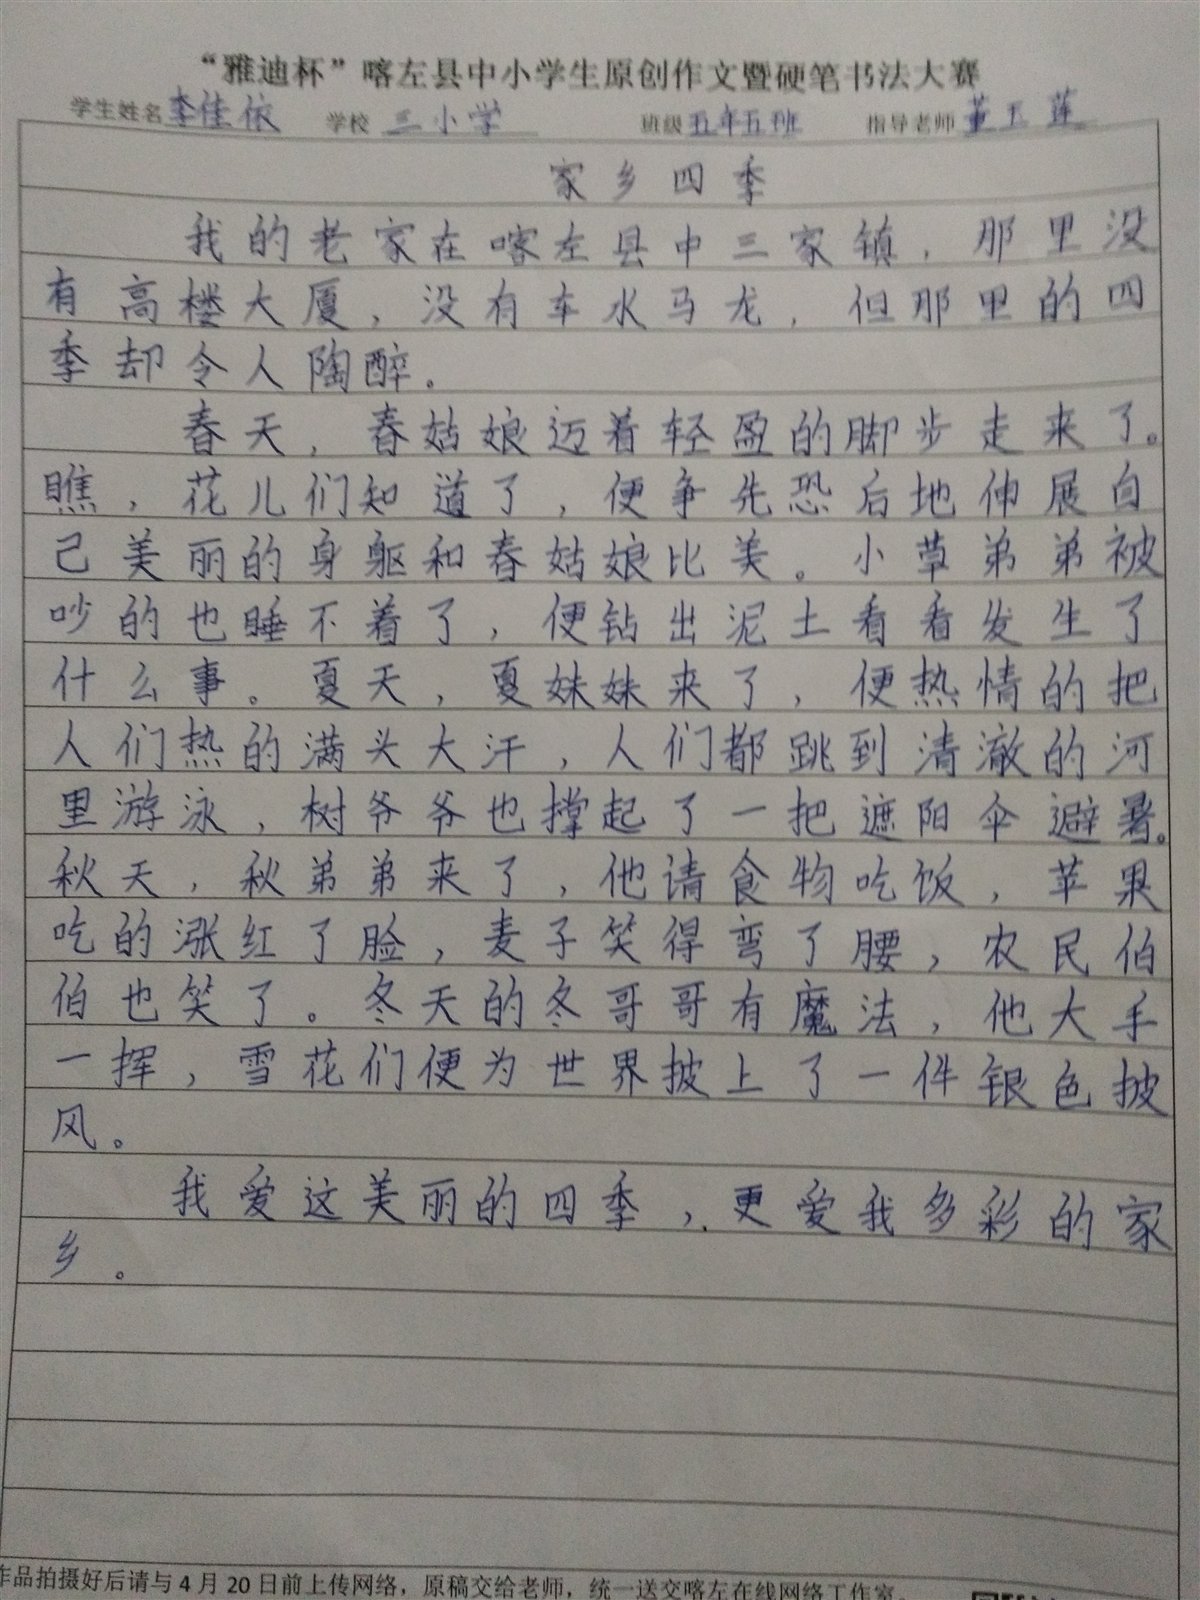 “雅迪杯”喀左县中小学生原创作文暨硬笔书法大赛
学生姓名 李佳依 学校 三小学 班级 五年五班 指导老师 董玉莲
家乡四季
我的老家在喀左县中三家镇，那里没
有高楼大厦，没有车水马龙，但那里的四
季却令人陶醉。
春天，春姑娘迈着轻盈的脚步走来了。
瞧，花儿们知道了，便争先恐后地伸展自
己美丽的身躯和春姑娘比美。小草弟弟被
吵的也睡不着了，便钻出泥土看看发生了
什么事。夏天，夏妹妹来了，便热情的把
人们热的满头大汗，人们都跳到清澈的河
里游泳，树爷爷也撑起了一把遮阳伞避暑。
秋天，秋弟弟来了，他请食物吃饭，苹果
吃的涨红了脸，麦子笑得弯了腰，农民伯
伯也笑了。冬天的冬哥哥有魔法，他大手
一挥，雪花们便为世界披上了一件银色披
风。
我爱这美丽的四季，更爱我多彩的家
乡。
作品拍摄好后请与4月20日前上传网络，原稿交给老师，统一送交喀左在线网络工作室。